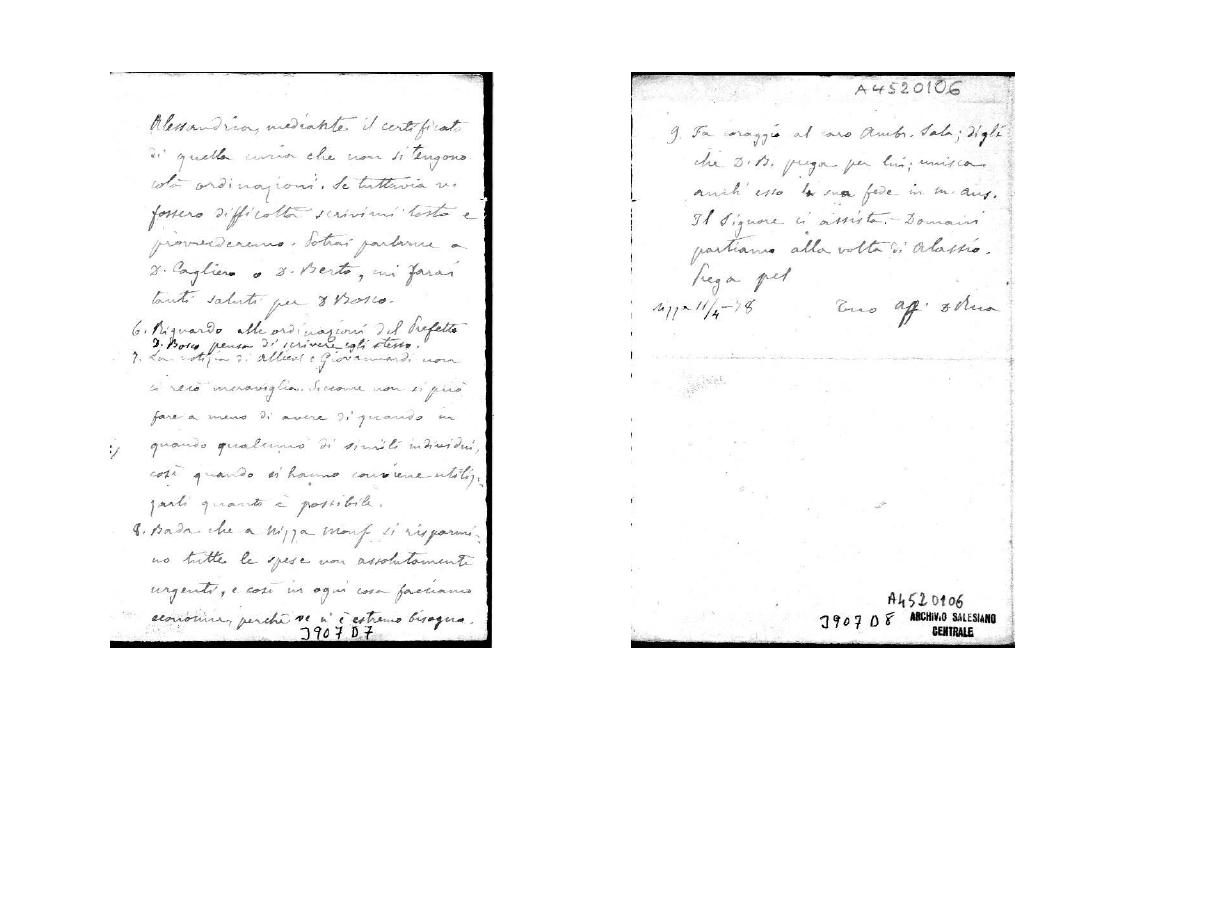 Alessandria, mediante il certificato
di quella curia che non si tengono
colà ordinazioni. Se tuttavia vi
fossero difficoltà scrivimi tosto e
provvederemo. Potrai parlarne a
D. Cagliero o D. Berto, cui farai
tanti saluti per D Bosco.
6. Riguardo alle ordinazioni del Prefetto
D. Bosco pensa di scrivere egli stesso.
7. La notizia di Allievi e Giovannardi non
ci recò meraviglia. Siccome non si può
fare a meno di avere di quando in
quando qualcuno di simili individui,
così quando si hanno conviene utiliz-
zarli quanto è possibile.
8. Bada che a Nizza Monf. si risparmi-
no tutte le spese non assolutamente
urgenti, e così in ogni cosa facciamo
economia, perché ve n'è estremo bisogno.
J907 D7
A4520106
9. Fa coraggio al caro Ambr. Sala; digli
che D. B. prega per lui; unisca
anch'esso la sua fede in M. Aus.
Il Signore ci assista. - Domani
partiamo alla volta di Alassio.
Prega pel
Nizza 11/4-78 Tuo aff. D Rua
A4520106
J907 D8 ARCHIVIO SALESIANO
CENTRALE